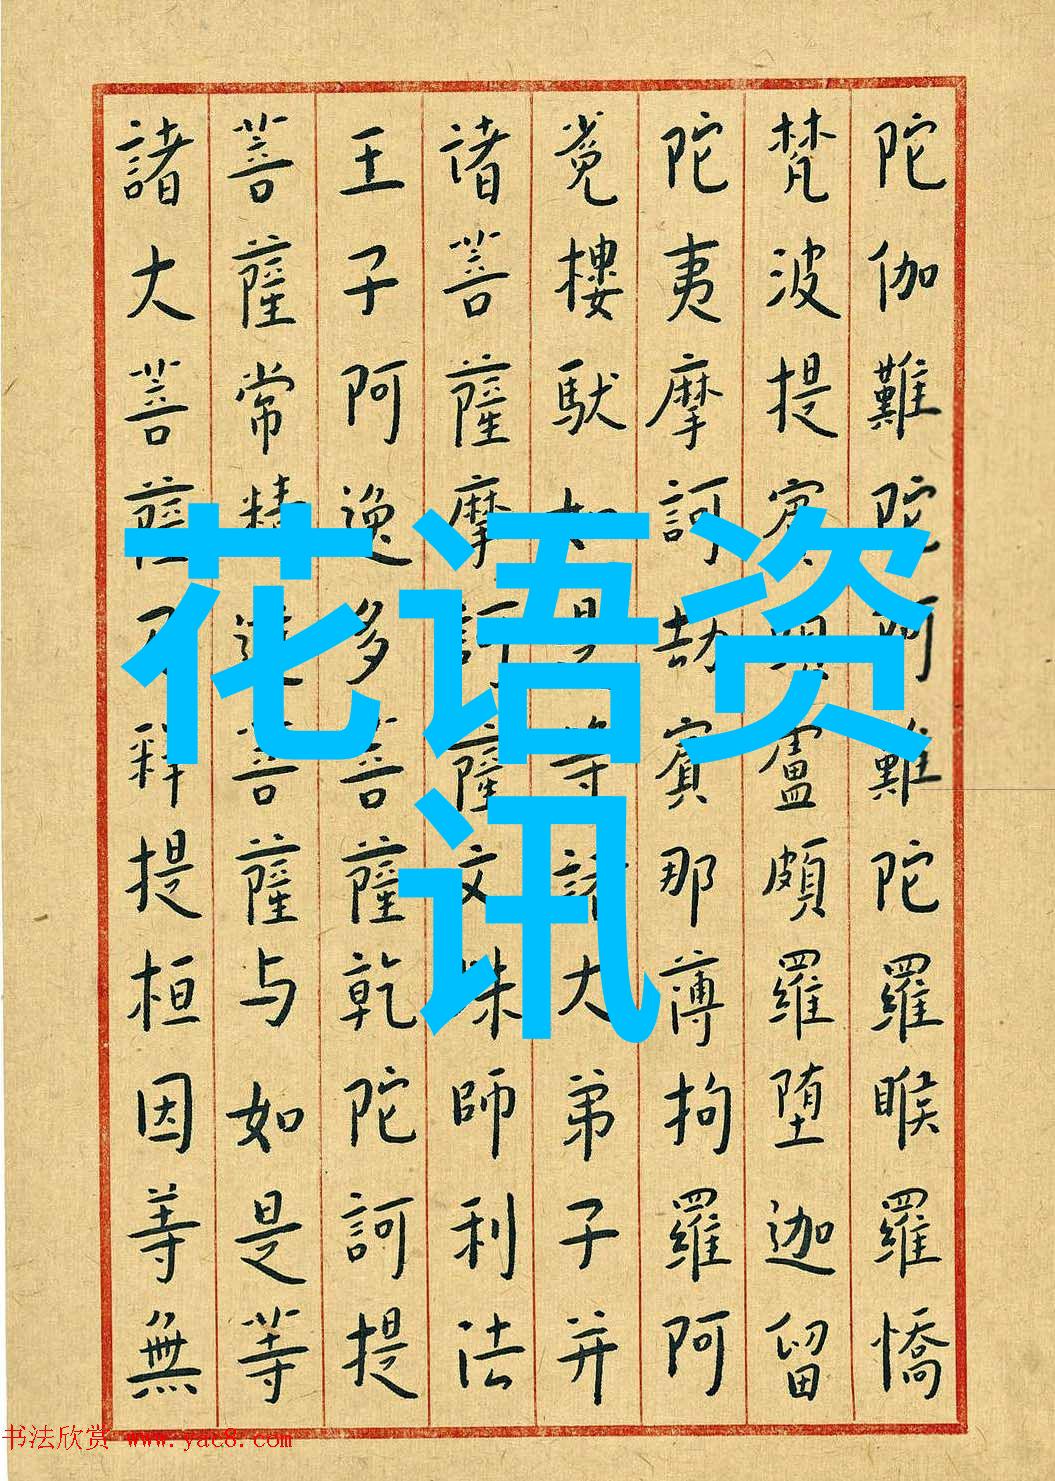 陀伽難陀阿難陀羅睺羅憍
梵波提賓頭盧頗羅堕迦留
陀夷摩訶劫賓那薄拘羅阿
㝹樓馱如是等諸大弟子并
诸菩薩摩訶薩文殊師利法
王子阿逸多菩薩乾陀訶提
菩薩常精進菩薩与如是等
諸大菩薩及释提桓因等無
花语资
讯
书法欣赏 www.yac8.com